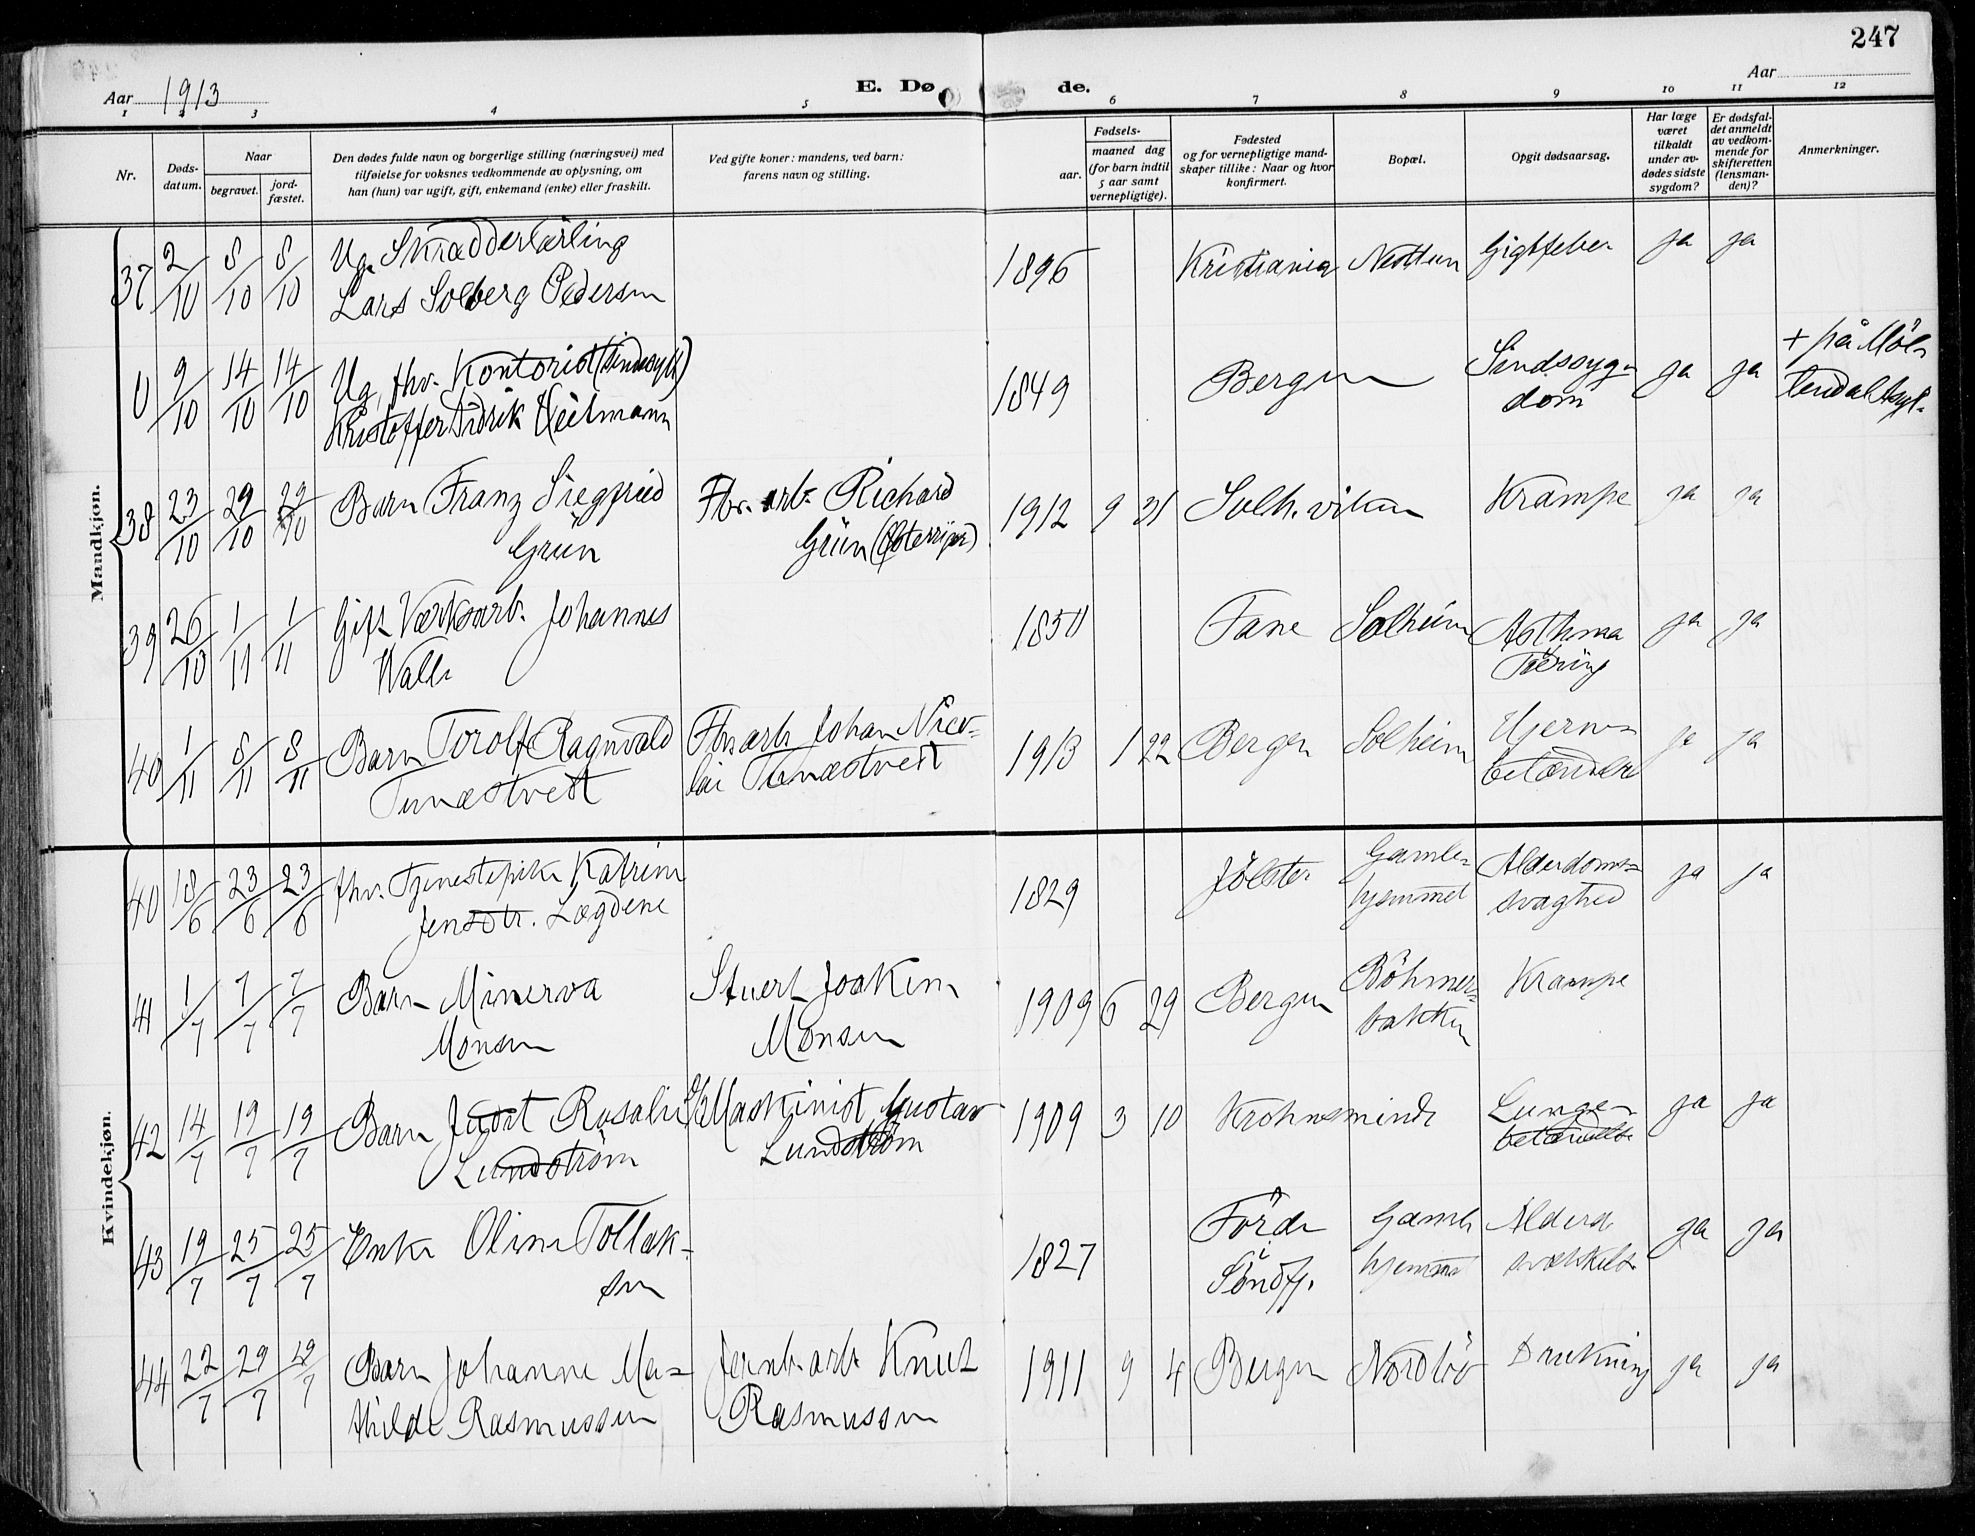 247
Aar 1913
E. Dø de.
Aar
1 2 3 4 5 6 7 8 9 10 11 12
Nr.
Døds-
datum.
Naar
begravet.
jord-
fæstet.
Den dødes fulde navn og borgerlige stilling (næringsvei) med
tilføielse for voksnes vedkommende av oplysning, om
han (hun) var ugift, gift, enkemand (enke) eller fraskilt.
Ved gifte koner: mandens, ved barn:
farens navn og stilling.
Fødsels-
aar.
maaned dag
(for barn indtil
5 aar samt
vernepligtige).
Fødested
og for vernepligtige mand-
skaper tillike: Naar og hvor
konfirmert.
Bopæl.
Opgit dødsaarsag.
Har læge
været
tilkaldt
under av-
dødes sidste
sygdom?
Er dødsfal-
det anmeldt
av vedkom-
mende for
skifteretten
(lensman-
den)?
Anmerkninger.
Mandkjøn.
37 2/10 8/10 8/10 Ug. Skrædderlærling
Lars Solberg Pedersen
1896 Kristiania Nesttun Gigtfeber ja ja
0 9/10 14/10 14/10 Ug, fhv. Kontorist (sindssyk)
Kristoffer Fidrik Heilmann
1849 Bergen Sindssyg-
dom ja ja + på Möl-
lendal Asyl.
38 23/10 29/10 29/10 Barn Franz Siegfried
Grün
Fbr. arb. Richard
Grün (Østerriger)
1912 9 31 Solh.viken Krampe ja ja
39 26/10 1/11 1/11 Gift Værksarb. Johannes
Walle
1850 Fane Solheim Asthma
Tæring ja ja
40 1/11 8/11 8/11 Barn Torolf Ragnvald
Tunæstveit
Fbrarb Johan Nico-
lai Tunæstveit
1913 1 22 Bergen Solheim Hjerne-
betændelse ja ja
Kvindekjøn.
40 18/6 23/6 23/6 fhv. Tjenestepike Katrine
Jensdtr. Lægdene
1829 Jölster Gamle-
hjemmet Alderdoms-
svaghed ja ja
41 1/7 7/7 7/7 Barn Minerva
Monsen
Stuert Joakim
Monsen
1909 6 29 Bergen Böhmer-
bakken Krampe
42 14/7 19/7 19/7 Barn Judit Rosalie
Lundström
Maskinist Gustav
Lundström
1909 3 10 Krohnsminde Lunge-
betændelse ja ja
43 19/7 25/7 25/7 Enke Oline Tollak-
sen
1827 Förde
Söndfj. Gamle
hjemmet Alderd
svækkelse ja ja
44 22/7 29/7 29/7 Barn Johanne Ma-
thilde Rasmussen
Jernb. arb. Knut
Rasmussen
1911 9 4 Bergen Nordbö Drukning ja ja